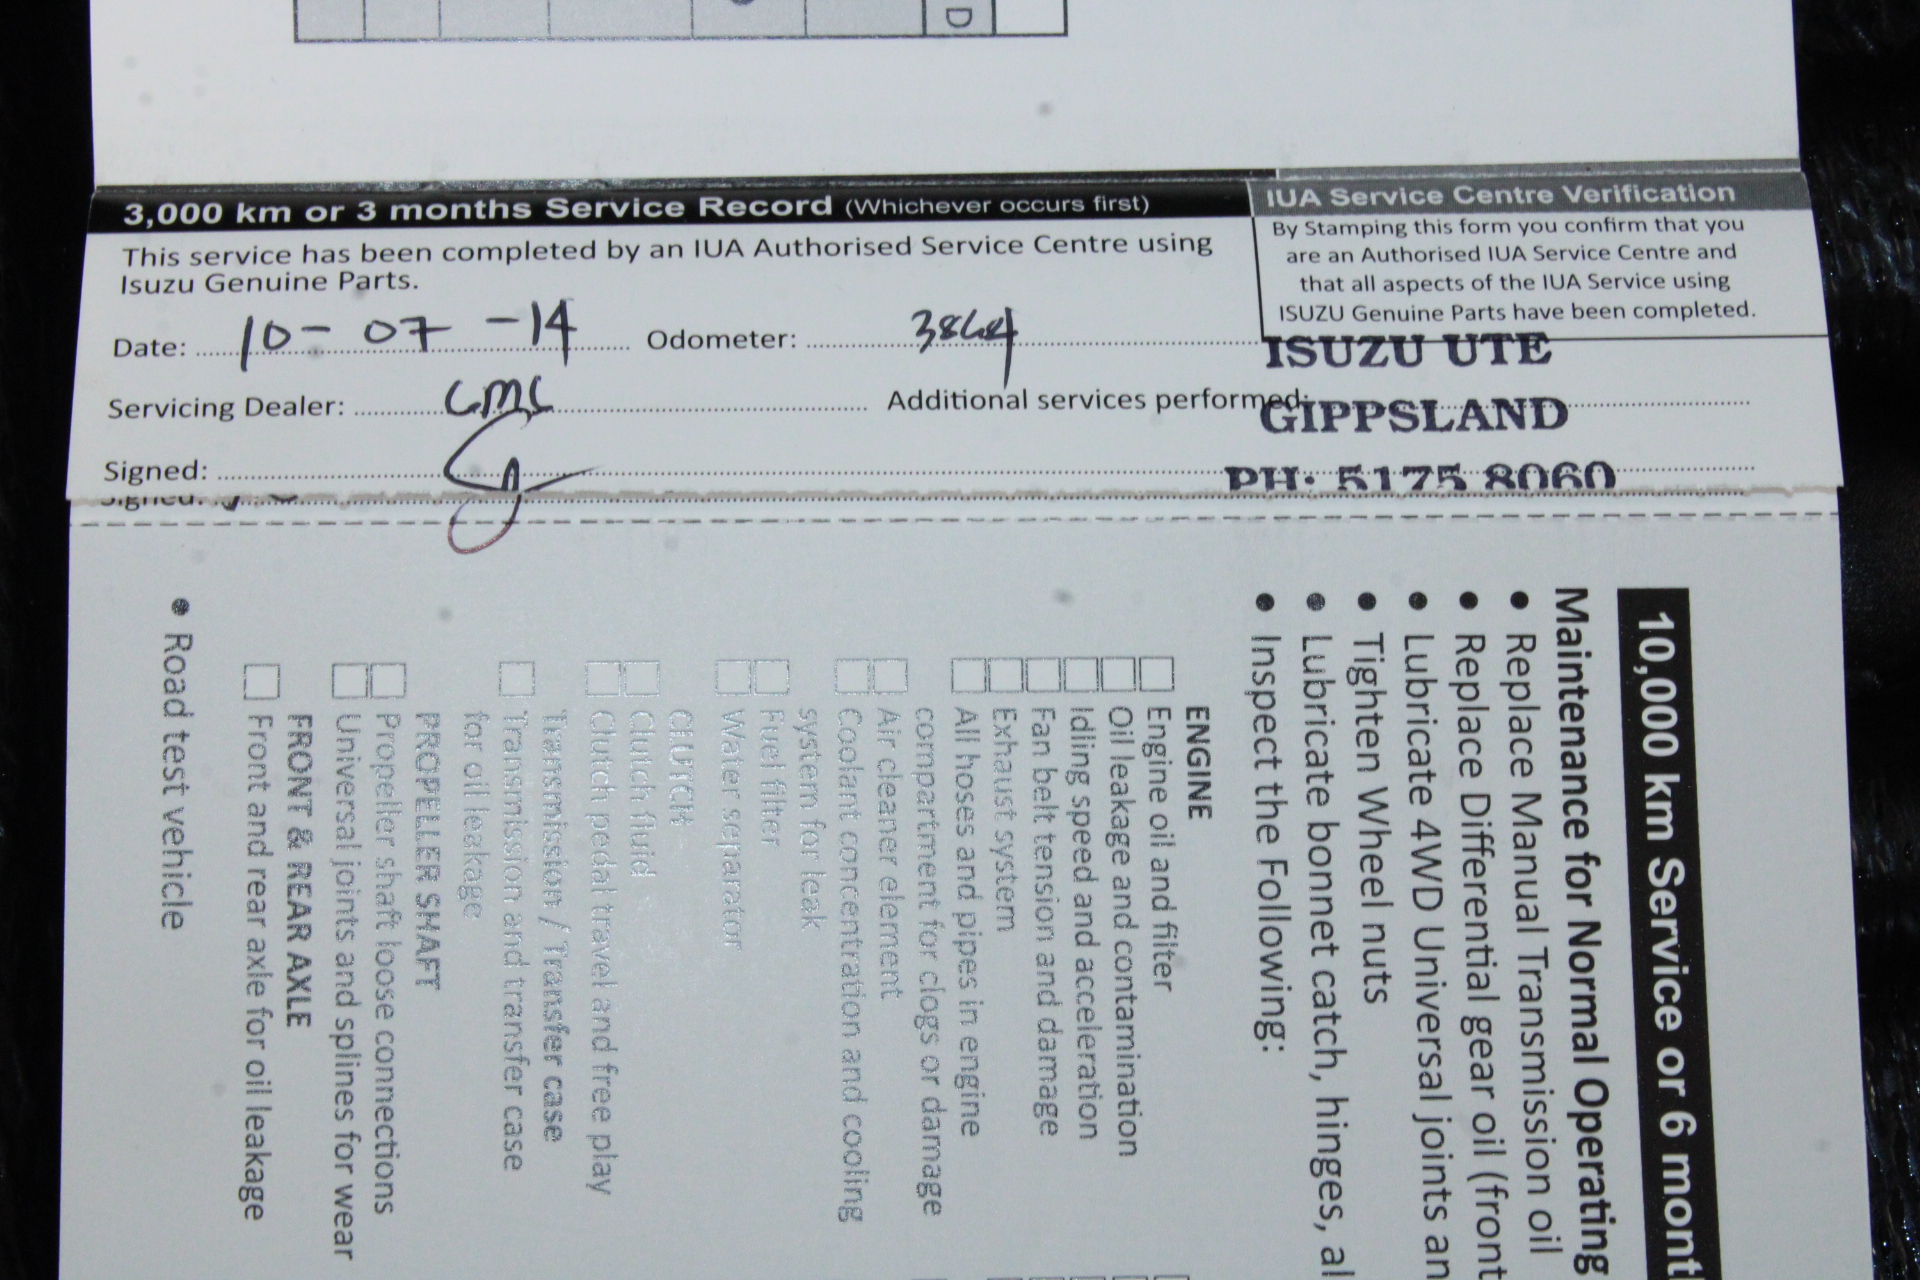 D
3,000 km or 3 months Service Record (Whichever occurs first)
This service has been completed by an IUA Authorised Service Centre using
Isuzu Genuine Parts.
Date: 10 - 07 - 14 Odometer: 3864
Servicing Dealer: CMC Additional services performed:
Signed:
Signed:
IUA Service Centre Verification
By Stamping this form you confirm that you
are an Authorised IUA Service Centre and
that all aspects of the IUA Service using
ISUZU Genuine Parts have been completed.
ISUZU UTE
GIPPSLAND
PH: 5175 8060
10,000 km Service or 6 mont
Maintenance for Normal Operating
• Replace Manual Transmission oil
• Replace Differential gear oil (front
• Lubricate 4WD Universal joints an
• Tighten Wheel nuts
• Lubricate bonnet catch, hinges, al
• Inspect the Following:
ENGINE
Engine oil and filter
Oil leakage and contamination
Idling speed and acceleration
Fan belt tension and damage
Exhaust system
All hoses and pipes in engine
compartment for clogs or damage
Air cleaner element
Coolant concentration and cooling
system for leak
Fuel filter
Water separator
CLUTCH
Clutch fluid
Clutch pedal travel and free play
Transmission / Transfer case
Transmission and transfer case
for oil leakage
PROPELLER SHAFT
Propeller shaft loose connections
Universal joints and splines for wear
FRONT & REAR AXLE
Front and rear axle for oil leakage
• Road test vehicle